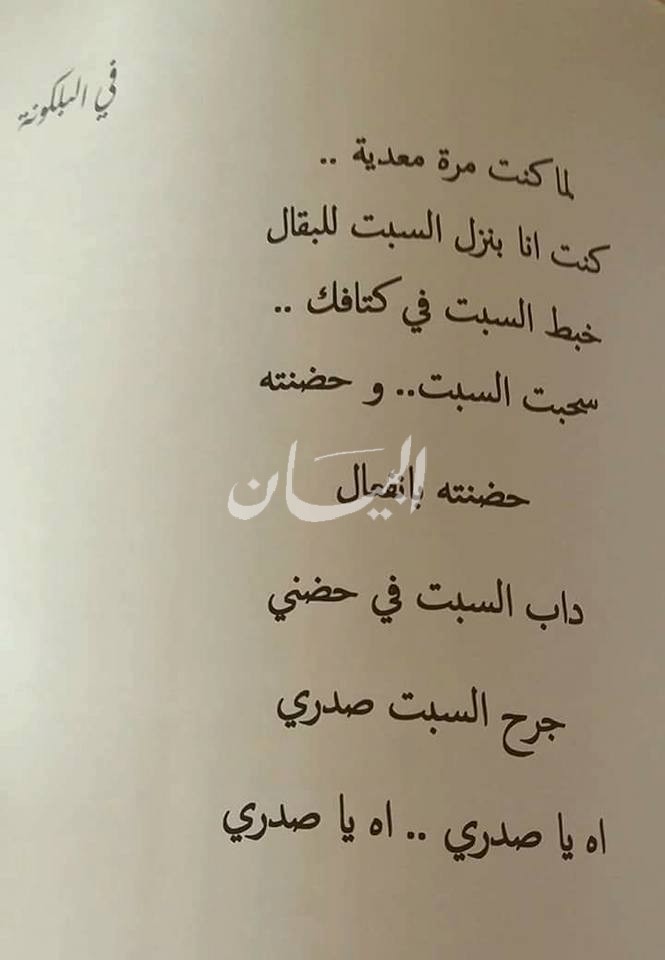 في البلكونة
لما كنت مرة معدية ..
كنت انا بنزل السبت للبقال
خبط السبت في كتافك ..
سحبت السبت.. و حضنته
حضنته بانفعال
البيان
داب السبت في حضني
جرح السبت صدري
اه يا صدري .. اه يا صدري